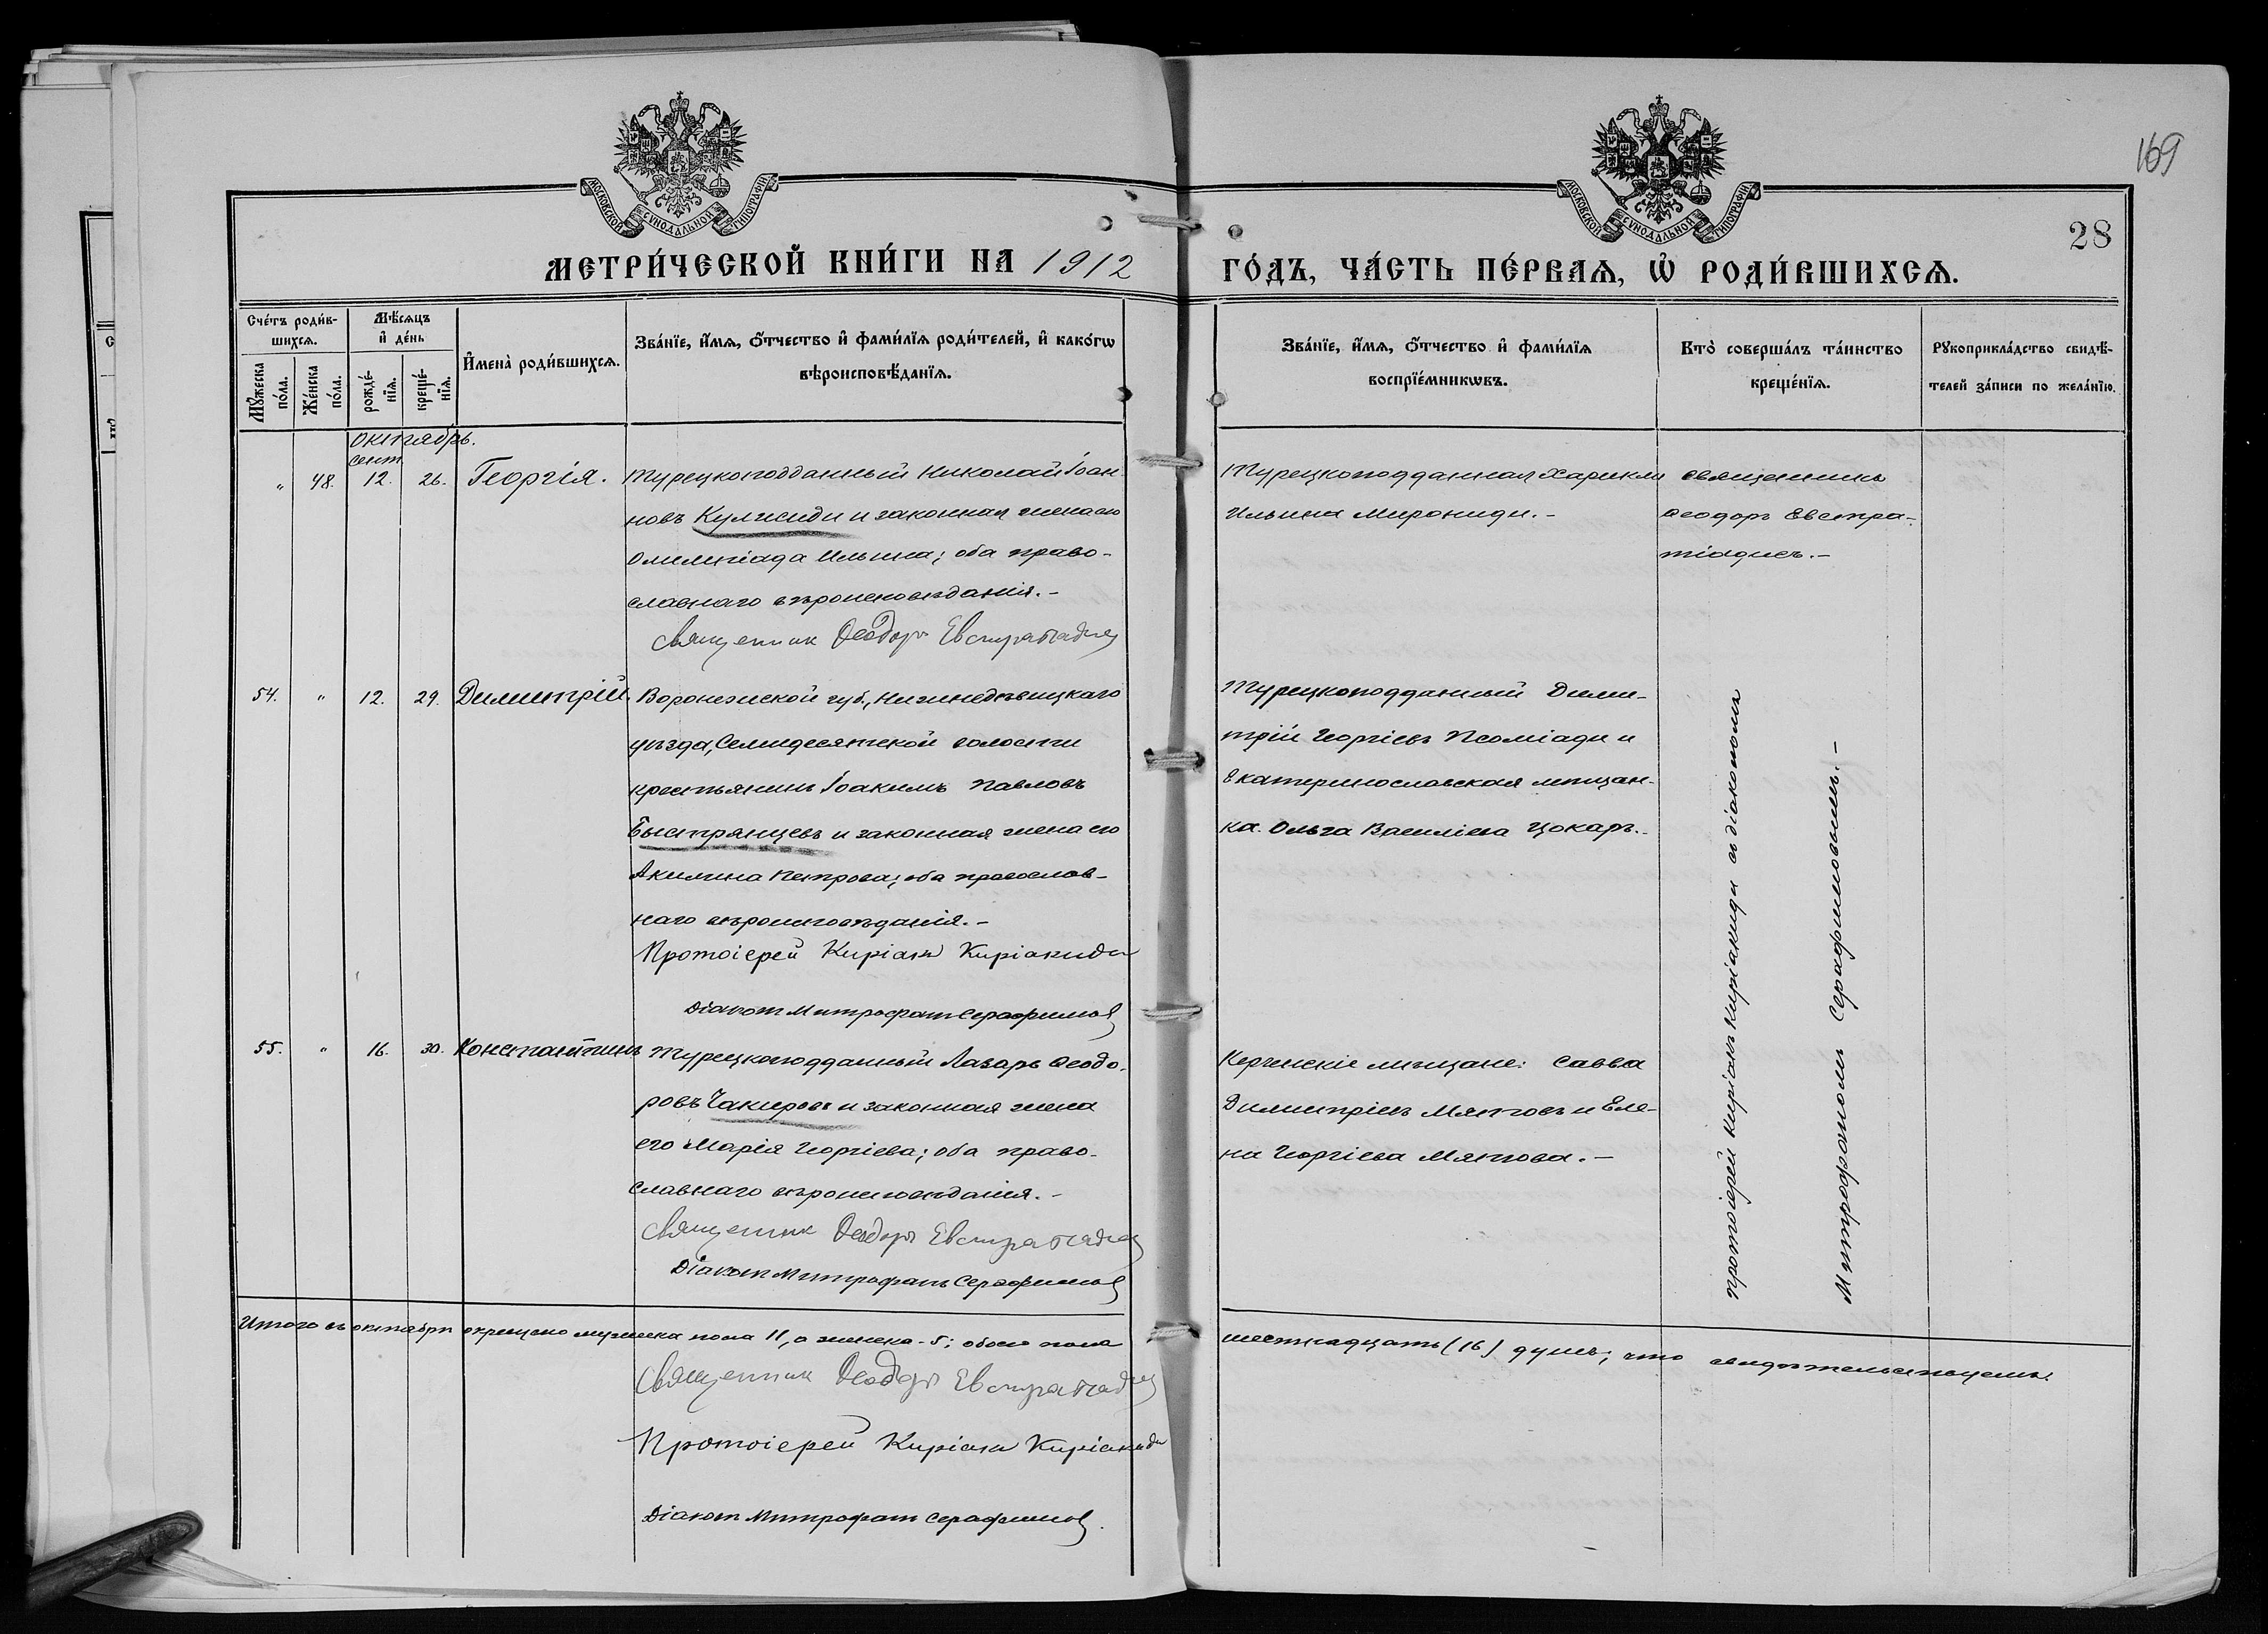 169
28
МОСКОВСКОЙ СѴНОДАЛЬНОЙ ТИПОГРАФІИ
МОСКОВСКОЙ СѴНОДАЛЬНОЙ ТИПОГРАФІИ
МЕТРИ́ЧЕСКОЙ КНИ́ГИ НА 1912
ГО́ДЪ, ЧА́СТЬ ПЕ́РВАѦ, Ѡ҆ РОДИ́ВШИХСѦ.
Сче́тъ роди́в-
шихсѧ.
Мꙋ́жеска
по́ла.
Же́нска
по́ла.
Мѣ́сѧцъ
и҆ де́нь
рожде́-
нїѧ.
креще́-
нїѧ.
И҆мена̀ роди́вшихсѧ.
Зва́нїе, и҆́мѧ, ѻ҆́тчество и҆ фами́лїѧ роди́телей, и҆ како́гѡ
вѣроисповѣ́данїѧ.
Зва́нїе, и҆́мѧ, ѻ҆́тчество и҆ фами́лїѧ
воспрїе́мникѡвъ.
Кто̀ соверша́лъ та́инство
креще́нїѧ.
Рꙋкоприкла́дство свидѣ́-
телей за́писи по жела́нїю.
Октябрь.
сент.
" 48. 12. 26. Георгія. Турецкоподданный Николай Іоан-
новъ Кулисиди и законная жена его
Олимпіада Ильина; оба право-
славнаго вѣроисповѣданія.-
Священник Ѳеодоръ Евстратіадис
Турецкоподданная Харикли
Ильина Мирониди.-
священникъ
Ѳеодоръ Евстра-
тіадисъ.-
54. " 12. 29. Димитрій Воронежской губ., Нижнедѣвицкаго
уѣзда, Семидесятской волости
крестьянинъ Іоакимъ Павловъ
Быстрянцевъ и законная жена его
Акилина Петрова; оба православ-
наго вѣроисповѣданія.-
Протоіерей Киріакъ Киріакиди
Діаконъ Митрофанъ Серафимовъ
Турецкоподданный Дими-
трій Георгіевъ Псоміади и
Екатеринославская мѣщан-
ка Ольга Василіева Цокаръ.-
протоіерей Киріакъ Киріакиди съ діакономъ
Митрофаномъ Серафимовымъ.-
55. " 16. 30. Константинъ Турецкоподданный Лазарь Ѳеодо-
ровъ Чакировъ и законная жена
его Марія Георгіева; оба право-
славнаго вѣроисповѣданія.-
Священник Ѳеодоръ Евстратіадис
Діаконъ Митрофанъ Серафимовъ
Керченскіе мѣщане: Савва
Димитріевъ Мятовъ и Еле-
на Георгіева Мятова.-
Итого въ октябрѣ окрещено мужеска пола 11, а женска - 5; обоего пола
шестнадцать (16) душъ; что свидѣтельствуемъ.
Священник Ѳеодоръ Евстратіадис
Протоіерей Киріакъ Киріакиди
Діаконъ Митрофанъ Серафимовъ.